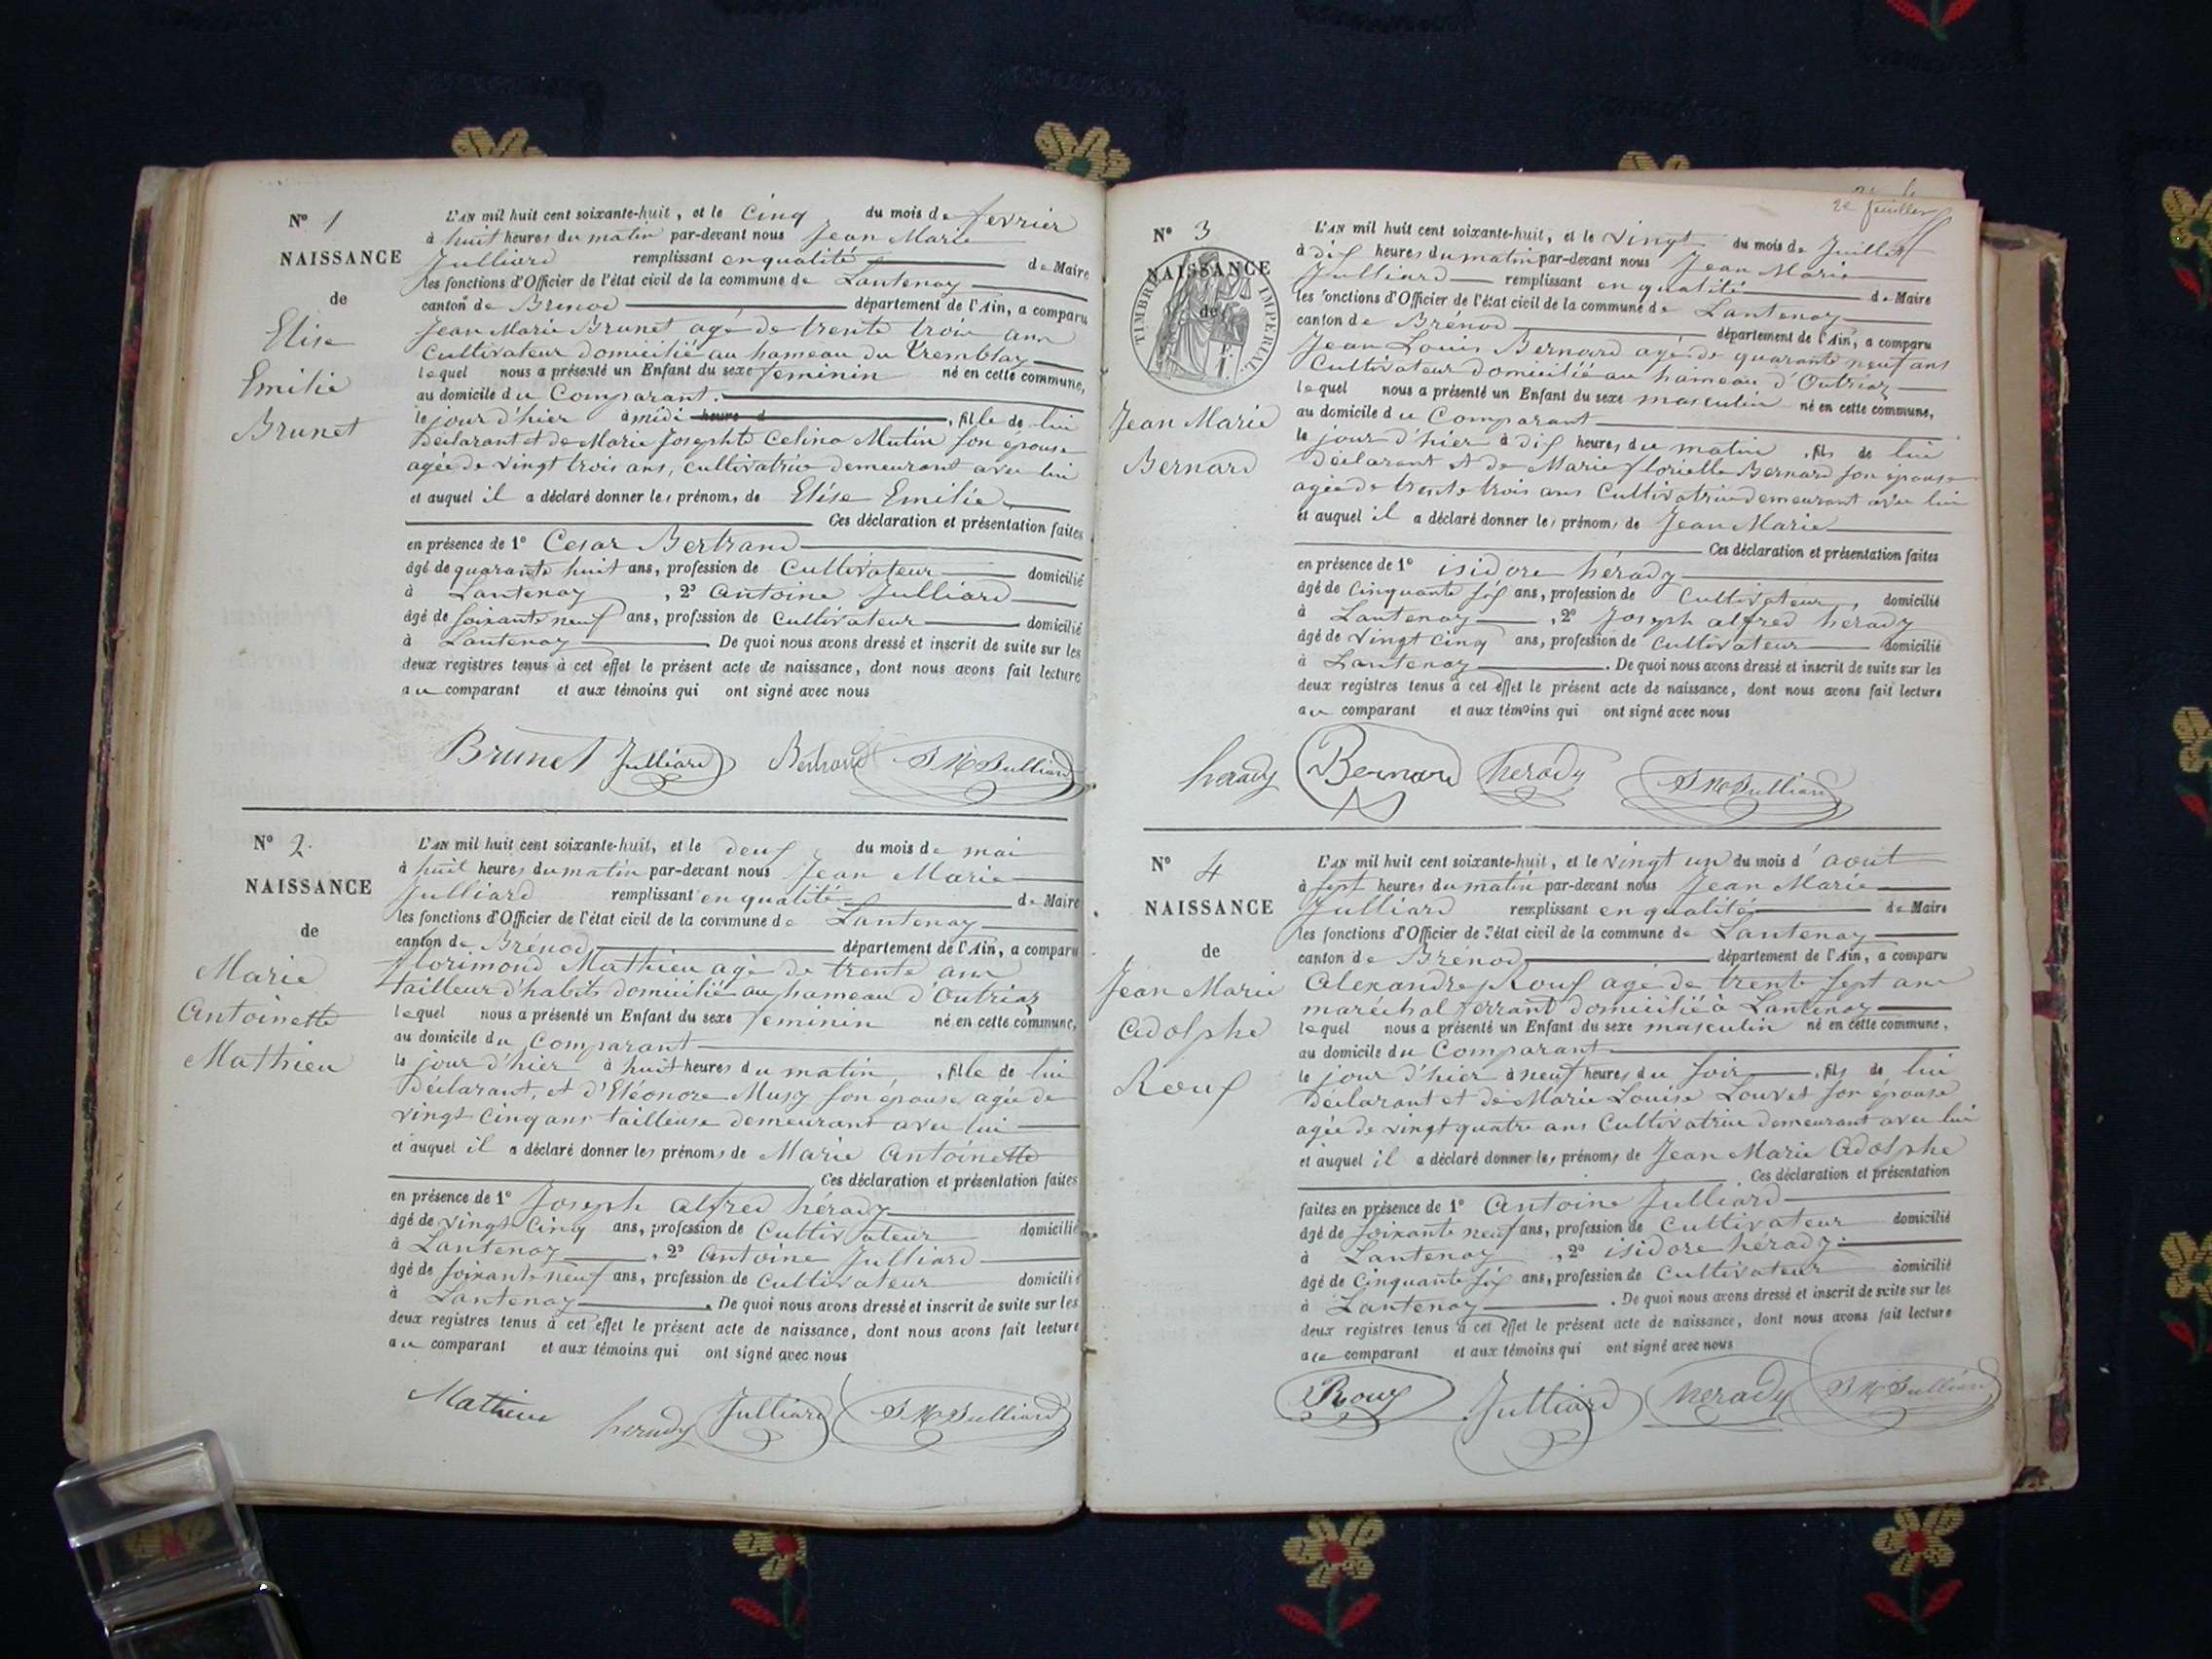 N° 1
NAISSANCE
de
Elise
Emilie
Brunet
L'AN mil huit cent soixante-huit, et le Cinq du mois de fevrier
à huit heures du matin par-devant nous Jean Marie
Julliard remplissant en qualité de Maire
les fonctions d'Officier de l'état civil de la commune de Lantenay
canton de Brénod département de l'Ain, a comparu
Jean Marie Brunet agé de trente trois ans
Cultivateur domicilié au hameau du Tremblay
lequel nous a présenté un Enfant du sexe feminin né en cette commune,
au domicile du Comparant.
le jour d'hier à midi heure d , fille de lui
déclarant et de Marie Josephte Celina Mutin son épouse
agée de vingt trois ans, cultivatrice demeurant avec lui
et auquel il a déclaré donner les prénoms de Elise Emilie
Ces déclaration et présentation faites
en présence de 1° Cesar Bertrand
âgé de quarante huit ans, profession de Cultivateur domicilié
à Lantenay , 2° Antoine Julliard
âgé de soixante neuf ans, profession de Cultivateur domicilié
à Lantenay De quoi nous avons dressé et inscrit de suite sur les
deux registres tenus à cet effet le présent acte de naissance, dont nous avons fait lecture
au comparant et aux témoins qui ont signé avec nous
Brunet Julliard Bertrand J M Julliard
N° 2.
NAISSANCE
de
Marie
Antoinette
Mathieu
L'AN mil huit cent soixante-huit, et le deux du mois de mai
à huit heures du matin par-devant nous Jean Marie
Julliard remplissant en qualité de Maire
les fonctions d'Officier de l'état civil de la commune de Lantenay
canton de Brénod département de l'Ain, a comparu
florimond Mathieu agé de trente ans
tailleur d'habits domicilié au hameau d'Outriaz
lequel nous a présenté un Enfant du sexe feminin né en cette commune,
au domicile du Comparant
le jour d'hier à huit heures du matin , fille de lui
déclarant, et d'Eléonore Musy son épouse agée de
vingt Cinq ans tailleuse demeurant avec lui
et auquel il a déclaré donner les prénoms de Marie Antoinette
Ces déclaration et présentation faites
en présence de 1° Joseph alfred hérady
âgé de vingt Cinq ans, profession de Cultivateur domicilié
à Lantenay , 2° Antoine Julliard
âgé de soixante neuf ans, profession de Cultivateur domicilié
à Lantenay . De quoi nous avons dressé et inscrit de suite sur les
deux registres tenus à cet effet le présent acte de naissance, dont nous avons fait lecture
au comparant et aux témoins qui ont signé avec nous
Mathieu herady Julliard J M Julliard
2e feuillet
N° 3
NAISSANCE
de
TIMBRE IMPERIAL
Jean Marie
Bernard
L'AN mil huit cent soixante-huit, et le vingt du mois de Juillet
à dix heures du matin par-devant nous Jean Marie
Julliard remplissant en qualité de Maire
les fonctions d'Officier de l'état civil de la commune de Lantenay
canton de Brénod département de l'Ain, a comparu
Jean Louis Bernard agé de quarante neuf ans
Cultivateur domicilié au hameau d'Outriaz
lequel nous a présenté un Enfant du sexe masculin né en cette commune,
au domicile du Comparant
le jour d'hier à dix heures du matin , fils de lui
déclarant et de Marie florielle Bernard son épouse
agée de trente trois ans Cultivatrice demeurant avec lui
et auquel il a déclaré donner les prénoms de Jean Marie
Ces déclaration et présentation faites
en présence de 1° isidore hérady
âgé de Cinquante six ans, profession de Cultivateur, domicilié
à Lantenay , 2° Joseph alfred herady
âgé de vingt Cinq ans, profession de Cultivateur domicilié
à Lantenay . De quoi nous avons dressé et inscrit de suite sur les
deux registres tenus à cet effet le présent acte de naissance, dont nous avons fait lecture
au comparant et aux témoins qui ont signé avec nous
herady Bernard herady J M Julliard
N° 4
NAISSANCE
de
Jean Marie
Adolphe
Roux
L'AN mil huit cent soixante-huit, et le vingt un du mois d'aout
à sept heures du matin par-devant nous Jean Marie
Julliard remplissant en qualité de Maire
les fonctions d'Officier de l'état civil de la commune de Lantenay
canton de Brénod département de l'Ain, a comparu
Alexandre Roux agé de trente sept ans
maréchal ferrant domicilié à Lantenay
lequel nous a présenté un Enfant du sexe masculin né en cette commune,
au domicile du Comparant
le jour d'hier à neuf heures du soir , fils de lui
déclarant et de Marie Louise Louvet son épouse
agée de vingt quatre ans Cultivatrice demeurant avec lui
et auquel il a déclaré donner les prénoms de Jean Marie Adolphe
Ces déclaration et présentation
faites en présence de 1° Antoine Julliard
âgé de soixante neuf ans, profession de Cultivateur domicilié
à Lantenay , 2° isidore hérady
âgé de Cinquante six ans, profession de Cultivateur domicilié
à Lantenay . De quoi nous avons dressé et inscrit de suite sur les
deux registres tenus à cet effet le présent acte de naissance, dont nous avons fait lecture
au comparant et aux témoins qui ont signé avec nous
Roux Julliard herady J M Julliard